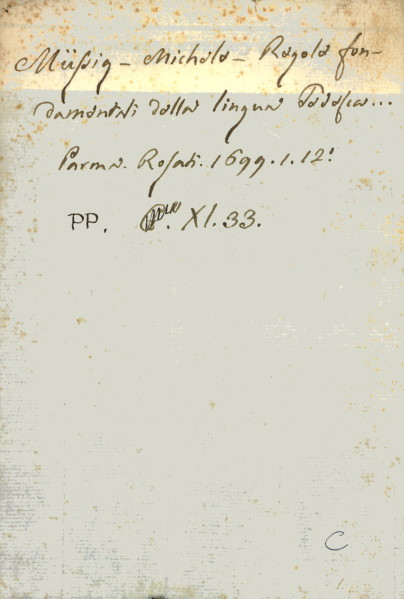 Müssig - Michele - Regole fon-
damentali della lingua Tedesca...
Parma. Rosati. 1699. 1. 12.°
PP. XI. 33.
C